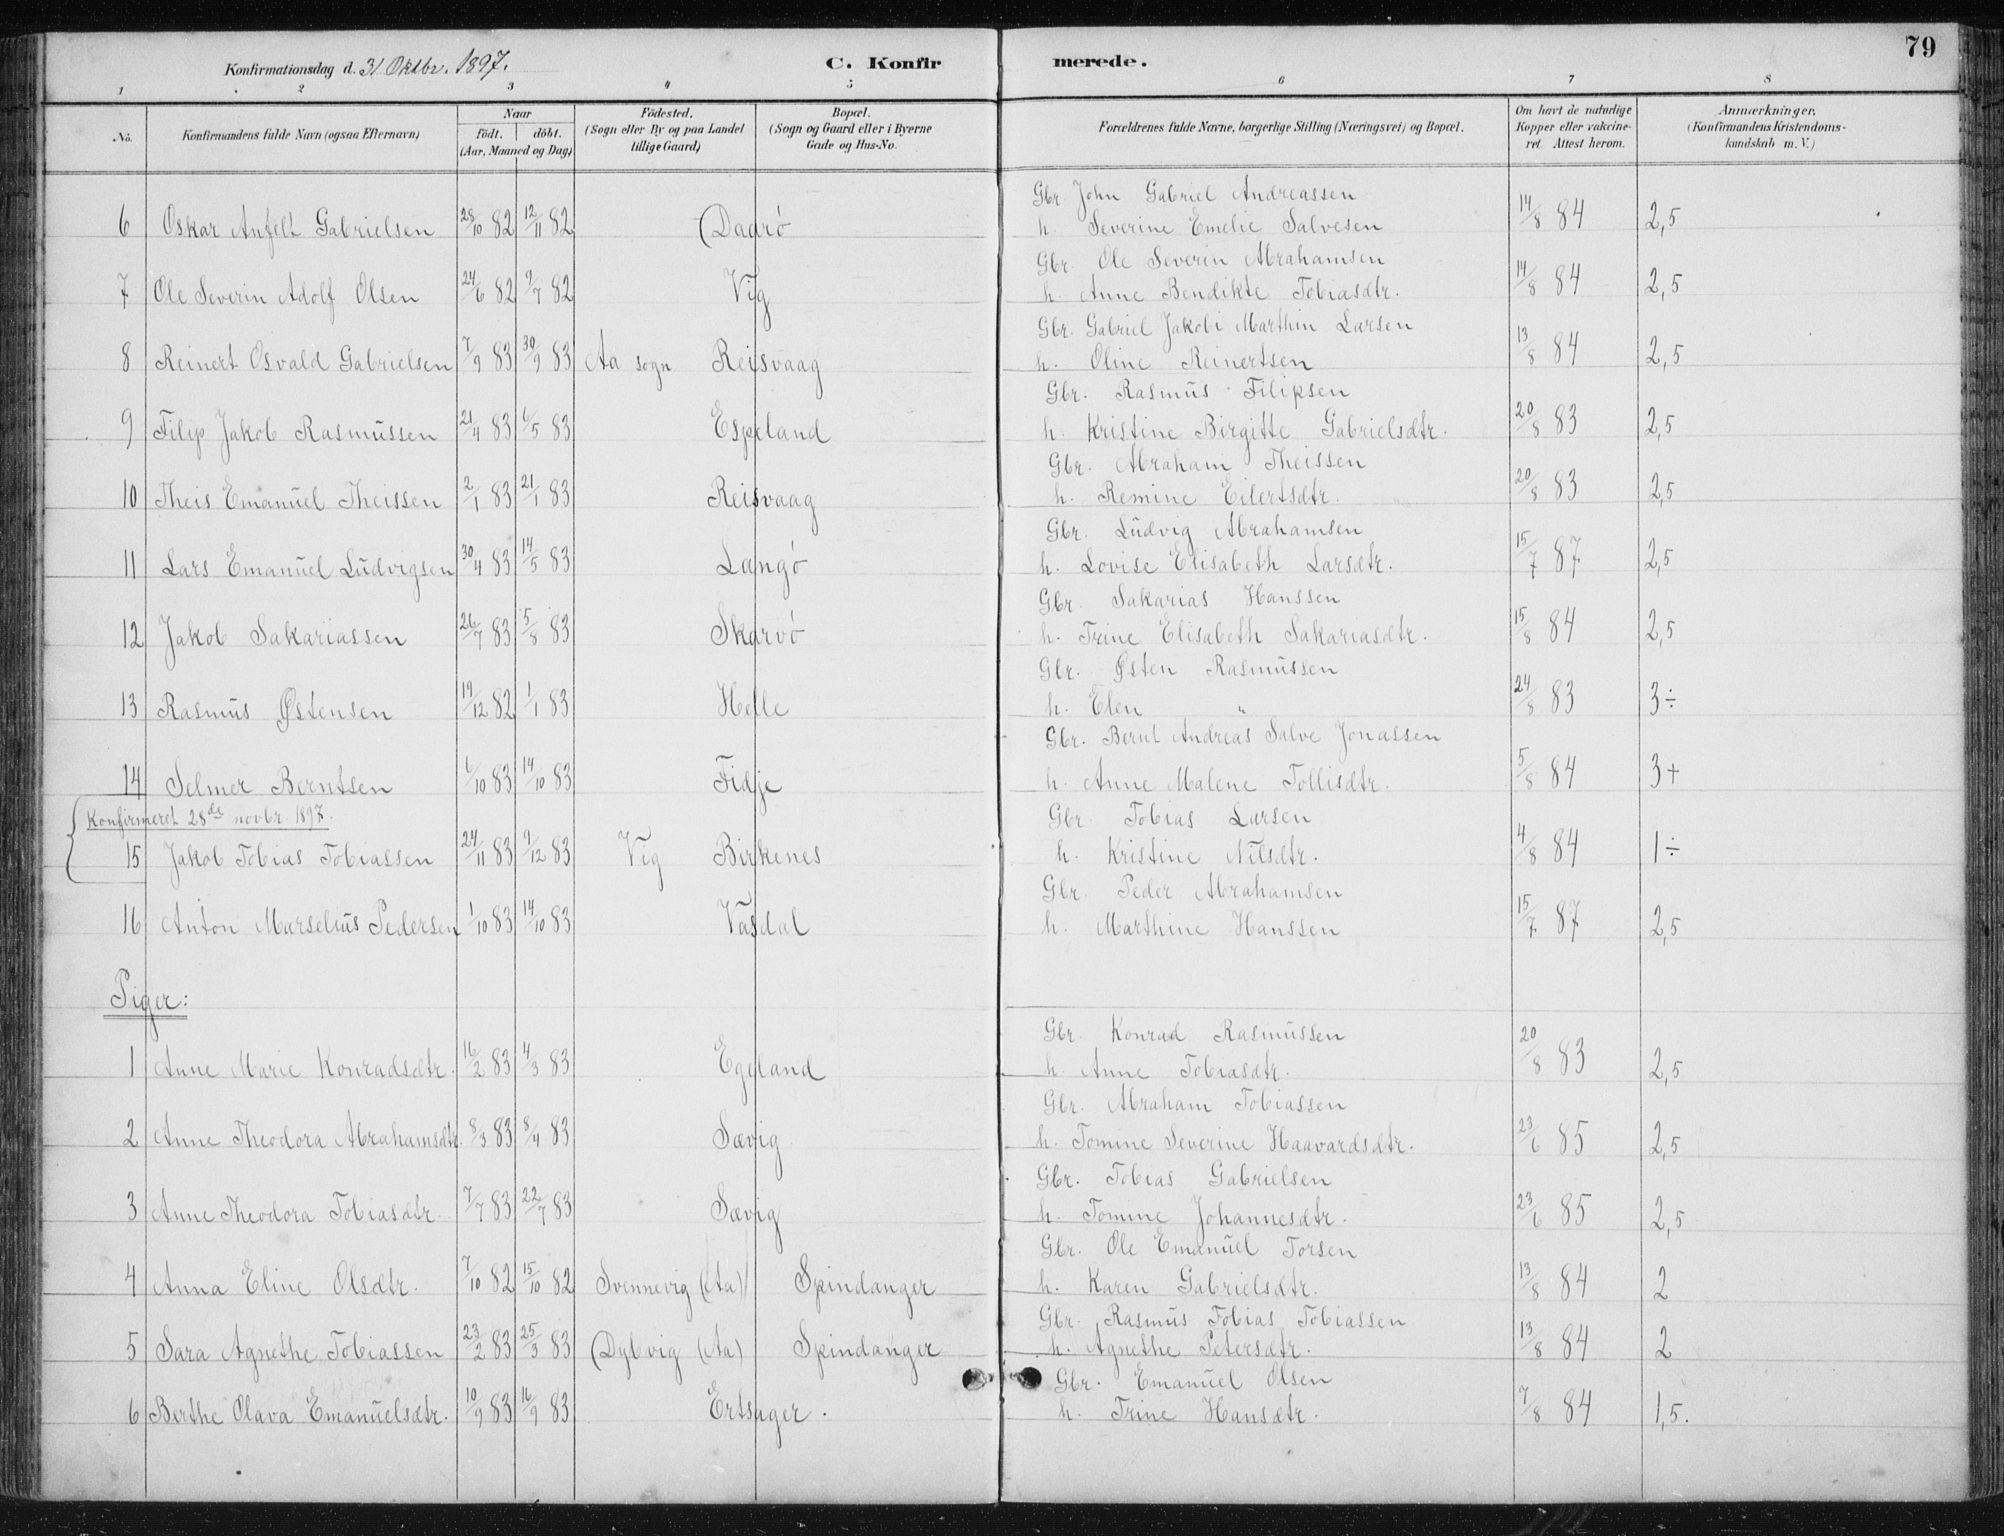 79
Konfirmationsdag d. 31 Oktbr. 1897.
C. Konfirmerede.
1 2 3 4 5 6 7 8
No.
Konfirmandens fulde Navn (ogsaa Efternavn)
Naar
födt. döbt.
(Aar, Maaned og Dag)
Födested.
(Sogn eller By og paa Landet
tillige Gaard)
Bopæl.
(Sogn og Gaard eller i Byerne
Gade og Hus-No.
Forældrenes fulde Navne, borgerlige Stilling (Næringsvei) og Bopæl.
Om havt de naturlige
Kopper eller vakcine-
ret. Attest herom.
Anmærkninger.
(Konfirmandens Kristendoms-
kundskab m. V.)
Gbr. John Gabriel Andreassen
6 Oskar Anfelt Gabrielsen 28/10 82 12/11 82 Dadrö h. Severine Emelie Salvesen 14/8 84 2,5
Gbr. Ole Severin Abrahamsen
7 Ole Severin Adolf Olsen 24/6 82 9/7 82 Vig h. Anne Bendikte Tobiasdtr. 14/8 84 2,5
Gbr. Gabriel Jakobi Marthin Larsen
8 Reinert Osvald Gabrielsen 7/9 83 30/9 83 Aa sogn Reisvaag h. Oline Reinertsen 13/8 84 2,5
Gbr. Rasmus Filipsen
9 Filip Jakob Rasmussen 21/4 83 6/5 83 Espeland h. Kristine Birgitte Gabrielsdtr. 20/8 83 2,5
Gbr. Abraham Theissen
10 Theis Emanuel Theissen 2/1 83 21/1 83 Reisvaag h. Remine Eilertsdtr. 20/8 83 2,5
Gbr. Ludvig Abrahamsen
11 Lars Emanuel Ludvigsen 30/4 83 14/5 83 Langö h. Lovise Elisabeth Larsdtr. 15/7 87 2,5
Gbr. Sakarias Hanssen
12 Jakob Sakariassen 26/7 83 5/8 83 Skarvö h. Trine Elisabeth Sakariasdtr. 15/8 84 2,5
Gbr. Østen Rasmussen
13 Rasmus Østensen 19/12 82 1/1 83 Helle h. Elen " 24/8 83 3÷
Gbr. Bernt Andreas Salve Jonassen
14 Selmer Berntsen 6/10 83 14/10 83 Fidje h. Anne Malene Tollisdtr. 5/8 84 3+
Konfirmeret 28de novbr. 1897.
Gbr. Tobias Larsen
15 Jakob Tobias Tobiassen 24/11 83 9/12 83 Vig Birkenes h. Kristine Nilsdtr. 4/8 84 1÷
Gbr. Peder Abrahamsen
16 Anton Marselius Pedersen 1/10 83 14/10 83 Vasdal h. Marthine Hanssen 15/7 87 2,5
Piger:
Gbr. Konrad Rasmussen
1 Anne Marie Konradsdtr. 16/2 83 4/3 83 Egeland h. Anne Tobiasdtr. 20/8 83 2,5
Gbr. Abraham Tobiassen
2 Anne Theodora Abrahamsdtr. 8/3 83 8/4 83 Sævig h. Tomine Severine Haavardsdtr. 23/6 85 2,5
Gbr. Tobias Gabrielsen
3 Anne Theodora Tobiasdtr. 7/7 83 22/7 83 Sævig h. Tomine Johannesdtr. 23/6 85 2,5
Gbr. Ole Emanuel Torsen
4 Anna Eline Olsdtr. 7/10 82 15/10 82 Svennevig (Aa) Spindanger h. Karen Gabrielsdtr. 13/8 84 2
Gbr. Rasmus Tobias Tobiassen
5 Sara Agnethe Tobiassen 23/2 83 25/3 83 Dybvig (Aa) Spindanger h. Agnethe Petersdtr. 13/8 84 2
Gbr. Emanuel Olsen
6 Berthe Olava Emanuelsdtr. 10/9 83 16/9 83 Ertsager. h. Trine Hansdtr. 7/8 84 1,5.